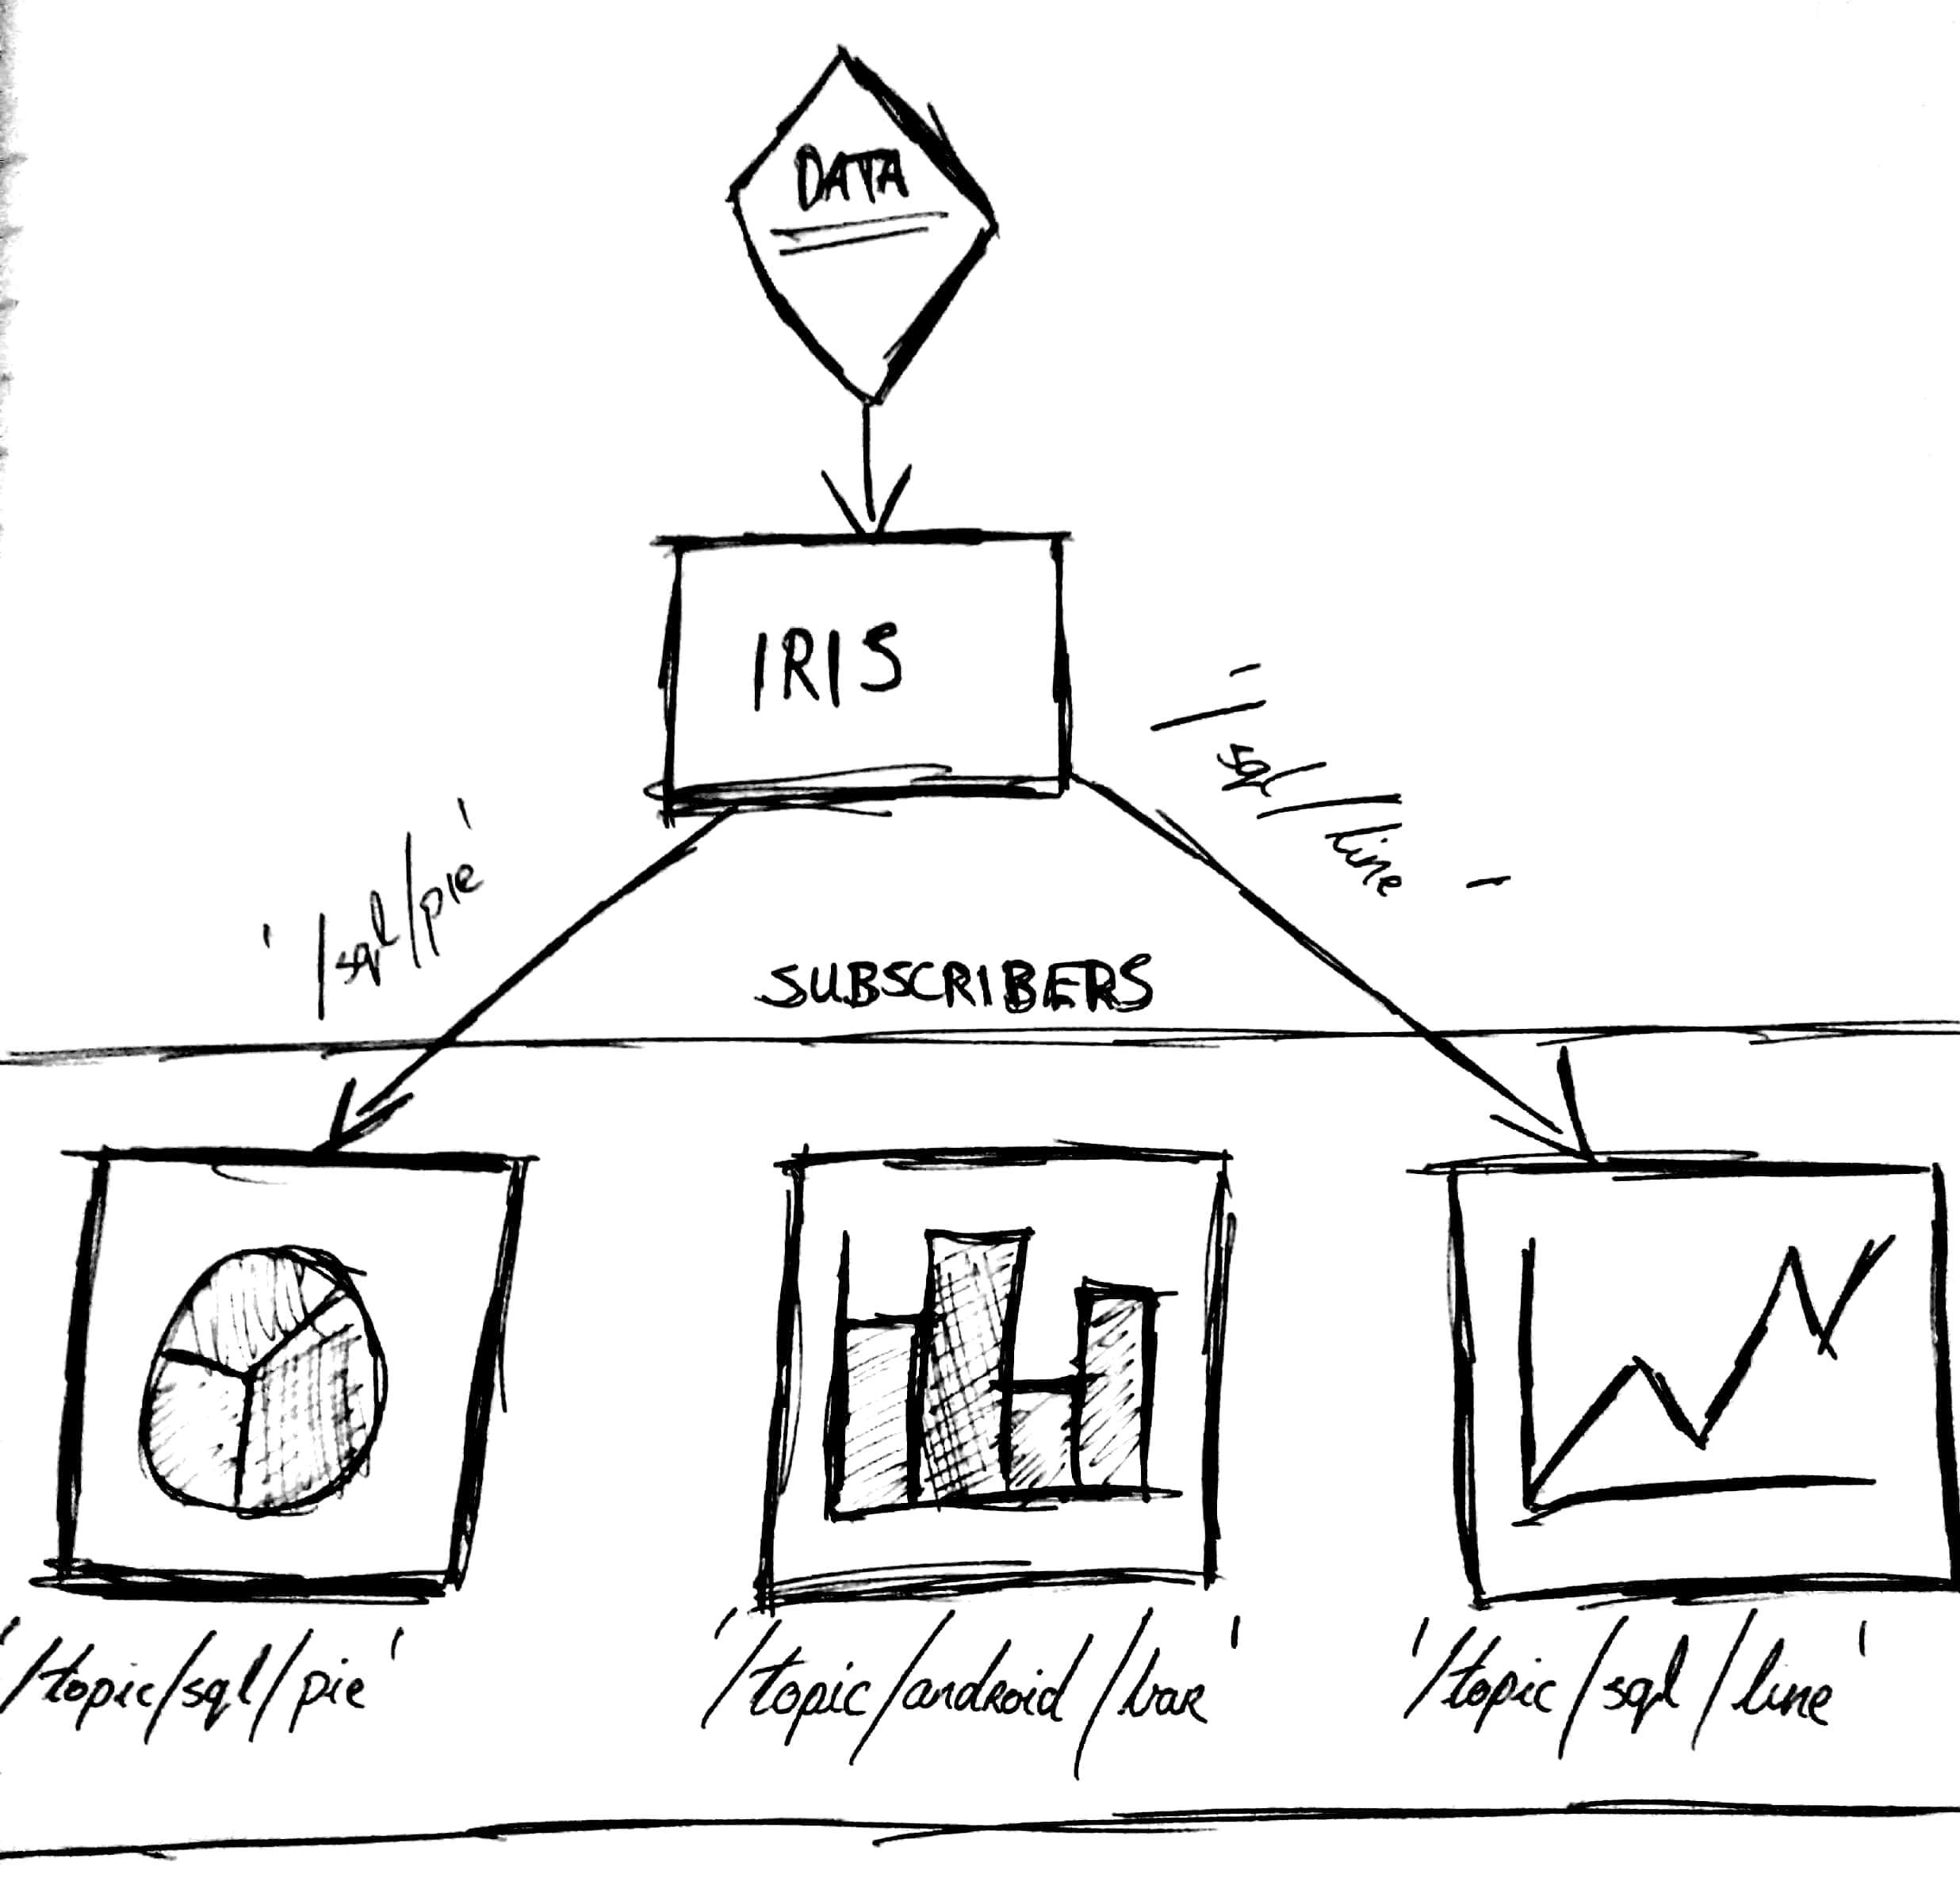 DATA
IRIS
'/sql/line'
'/sql/pie'
SUBSCRIBERS
'/topic/sql/pie'
'/topic/android/bar'
'/topic/sql/line'